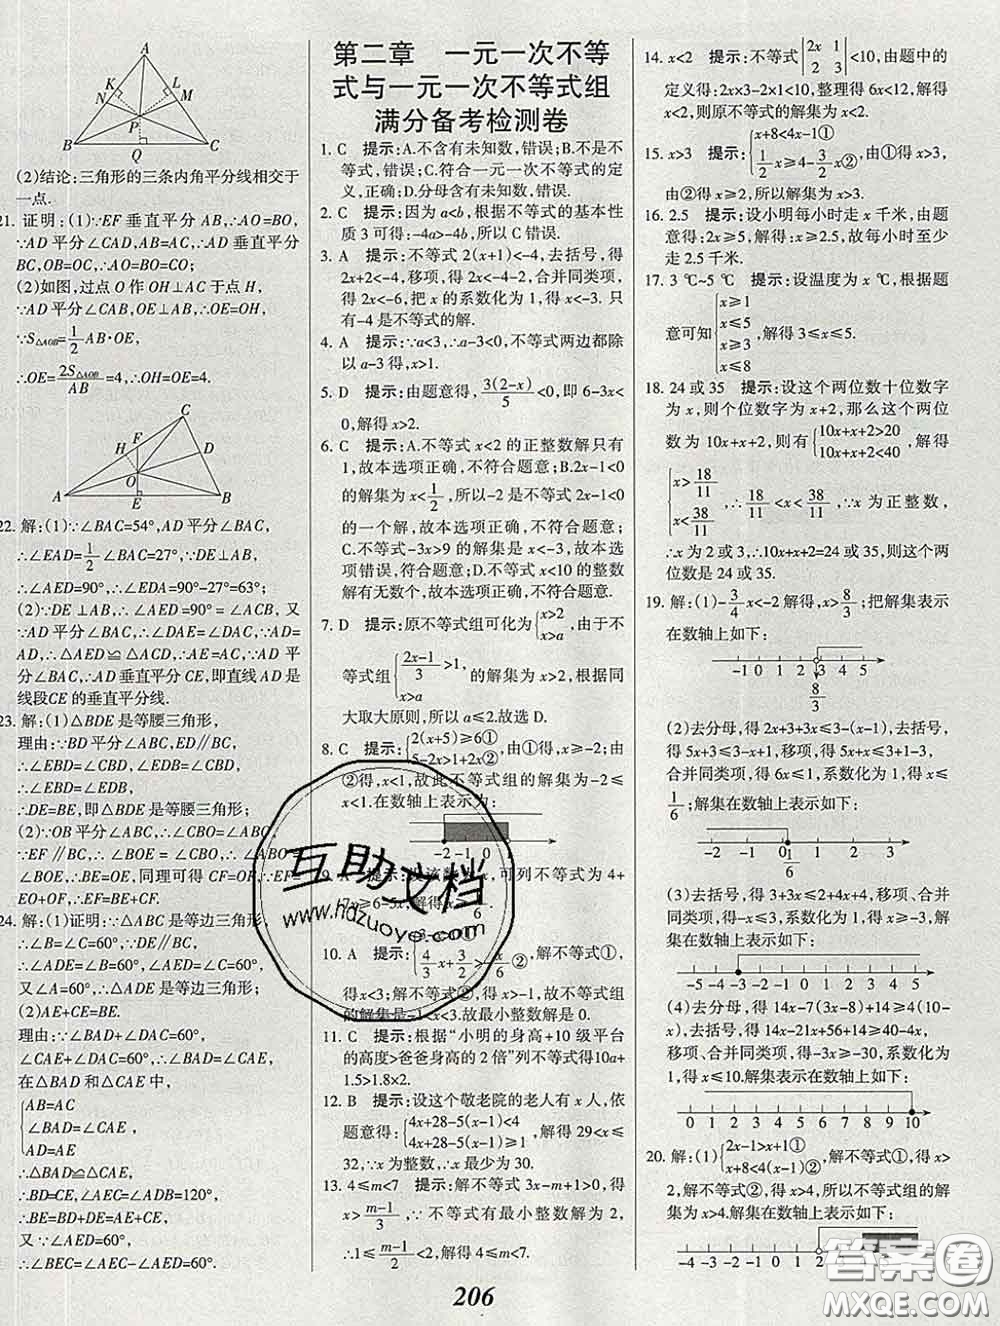 A
K
L
N
M
P
B
Q
C
(2)结论:三角形的三条内角平分线相交于
一点.
21. 证明:(1)∵EF垂直平分AB,∴AO=BO,
∵AD平分∠CAD,AB=AC,∴AD垂直平分
BC,OB=OC,∴AO=BO=CO;
(2)如图,过点O作OH⊥AC于点H,
∵AD平分∠CAB,OE⊥AB,∴OE=OH,
∵S△AOB=1/2 AB·OE,
∴OE=2S△AOB/AB=4,∴OH=OE=4.
C
F
H
D
O
A
E
B
22. 解:(1)∵∠BAC=54°,AD平分∠BAC,
∴∠EAD=1/2∠BAC=27°,∵DE⊥AB,
∴∠AED=90°,∴∠EDA=90°-27°=63°;
(2)∵DE⊥AB,∴∠AED=90°=∠ACB,又
∵AD平分∠BAC,∴∠DAE=∠DAC,∵AD=
AD,∴△AED≌△ACD,∴AE=AC,∵AD平
分∠BAC,∴AD垂直平分CE,即直线AD是
线段CE的垂直平分线.
23. 解:(1)△BDE是等腰三角形,
理由:∵BD平分∠ABC,ED∥BC,
∴∠EBD=∠CBD,∠EDB=∠CBD,
∴∠EBD=∠EDB,
∴DE=BE,即△BDE是等腰三角形;
(2)∵OB平分∠ABC,∴∠CBO=∠ABO,
∵EF∥BC,∴∠BOE=∠CBO,∴∠ABO=
∠BOE,∴BE=OE,同理可得CF=OF,∵EF=
EO+OF,∴EF=BE+CF.
24. 解:(1)证明:∵△ABC是等边三角形,
∴∠B=∠C=60°,∵DE∥BC,
∴∠ADE=∠B=60°,∠AED=∠C=60°,
又∠A=60°,∴△ADE是等边三角形;
(2)AE+CE=BE.
理由:∵∠BAD+∠DAC=60°,
∠CAE+∠DAC=60°,∴∠BAD=∠CAE,
在△BAD和△CAE中,
AB=AC
∠BAD=∠CAE,
AD=AE
∴△BAD≌△CAE,
∴BD=CE,∠AEC=∠ADB=120°,
∴BE=BD+DE=AE+CE,
又∵∠AED=60°,
∴∠BEC=∠AEC-∠AED=60°.
第二章 一元一次不等
式与一元一次不等式组
满分备考检测卷
1. C 提示:A.不含有未知数,错误;B.不是不
等式,错误;C.符合一元一次不等式的定
义,正确;D.分母含有未知数,错误.
2. C 提示:因为a<b,根据不等式的基本性
质3可得:-4a>-4b,所以C错误.
3. A 提示:不等式2(x+1)<-2,去括号,得
2x+2<-4,移项,得2x<-4-2,合并同类项,得
2x<-6,把x的系数化为1,得x<-3.只
有-4是不等式的解.
4. A 提示:∵a<3,∴a-3<0,不等式两边都除
以a-3得,x>1.
5. D 提示:由题意得,3(2-x)/5<0,即6-3x<
0,解得x>2.
6. C 提示:A.不等式x<2的正整数解只有
1,故本选项正确,不符合题意;B.2x-1<0
的解集为x<1/2,所以-2是不等式2x-1<0
的一个解,故本选项正确,不符合题意;
C.不等式-3x>9的解集是x<-3,故本
选项错误,符合题意;D.不等式x<10的整数
解有无数个,故本选项正确,不符合题意.
7. D 提示:原不等式组可化为{x>2 x>a,由于不
等式组{(2x-1)/3>1, x>a的解集为x>2,根据同
大取大原则,所以a≤2.故选D.
8. C 提示:{2(x+5)≥6① 5-2x>1+2x②,由①得,x≥-2;由
②得,x<1,故此不等式组的解集为-2≤
x<1.在数轴上表示为:
-2 -1 0
9. A 提示:设该数为x,可列不等式为4+
10. A 提示:{ 4/3 x+3/2>x/6②,解不等式①,
得x<3;解不等式②,得x>-1,故不等式组
的解集是-1<x<3.故最小整数解是0.
11. C 提示:根据“小明的身高+10级平台
的高度>爸爸身高的2倍”列不等式得10a+
1.5>1.8×2.
12. B 提示:设这个敬老院的老人有x人,依
题意得:{4x+28-5(x-1)<4 4x+28-5(x-1)≥1,解得29<x≤
32,∵x为整数,∴x最少为30.
13. 4≤m<7 提示:不等式3x-m+1>0,得
x>(m-1)/3,∵不等式有最小整数解为2,
∴1≤(m-1)/2<2,解得4≤m<7.
14. x<2 提示:不等式|2x 1 2 3|<10,由题中的
定义得:2x×3-2×1<10,整理得6x<12,解得x<
2,则原不等式的解集为x<2.
15. x>3 提示:{x+8<4x-1① 1/2 x≥4-3/2 x②,由①得x>3,
由②得x≥2,所以解集为x>3.
16. 2.5 提示:设小明每小时走x千米,由题
意得:2x≥5,解得:x≥2.5,故每小时至少
走2.5千米.
17. 3℃-5℃ 提示:设温度为x℃,根据题
意可知{x≥1 x≤5 x≥3 x≤8,解得3≤x≤5.
18. 24或35 提示:设这个两位数十位数字
为x,则个位数字为x+2,那么这个两位
数为10x+x+2,则有{10x+x+2>20 10x+x+2<40,解得
{x>18/11 x<38/11,∴18/11<x<38/11,∵x为正整数,
∴x为2或3,∴10x+x+2=24或35,则这个两
位数是24或35.
19. 解:(1)-3/4 x<-2解得,x>8/3;把解集表示
在数轴上如下:
-1 0 1 2 3 4 5
8/3
(2)去分母,得2x+3+3x≤3-(x-1),去括号,
得5x+3≤3-x+1,移项,得5x+x≤3+1-3,
合并同类项,得6x≤1,系数化为1,得x≤
1/6;解集在数轴上表示如下:
-2 -1 0 1/6 1 2 3
(3)去括号,得2x-2+2<5-3x-3,移项、合并
同类项,得
集在数轴上表示如下:
-6 -5 -4 -3 -2 -1 0 1 2 3 4
(4)去分母,得14x-7(3x-8)+14≥4(10-
x),去括号,得14x-21x+56+14≥40-4x,
移项、合并同类项,得-3x≥-30,系数化
为1,得x≤10.解集在数轴上表示如下:
0 1 2 3 4 5 6 7 8 9 10
20. 解:{2x-1>x+1① x+8<4(x-1)②,解不等式①,得x>
2,解不等式②,得x>4,所以不等式组的解集
为x>4.解集在数轴上表示如下:
-4 -3 -2 -1 0 1 2
206
互助文档
www.hdzuoye.com
答案圈
MXQE.COM